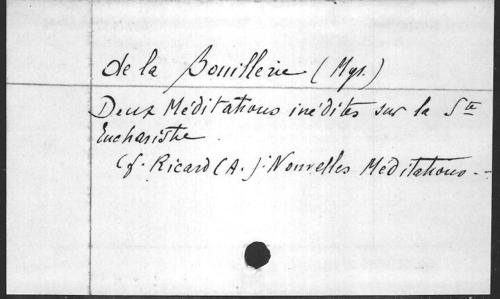 de la Bouillerie (Mgr.)
Deux Méditations inédites sur la Ste
Eucharistie.
Cf. Ricard (A.): Nouvelles Méditations. -